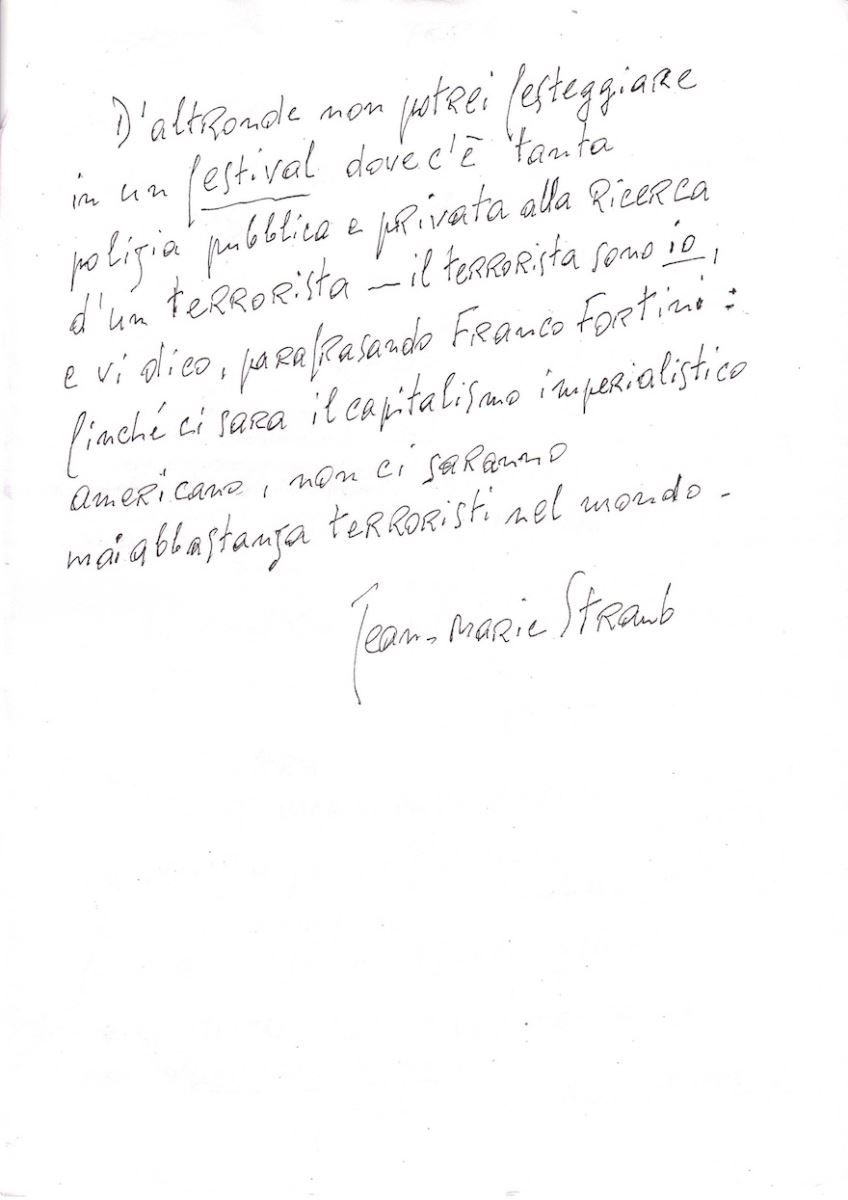 D'altronde non potrei festeggiare
in un festival dove c'è tanta
polizia pubblica e privata alla ricerca
d'un terrorista — il terrorista sono io,
e vi dico, parafrasando Franco Fortini :
finché ci sara il capitalismo imperialistico
americano, non ci saranno
mai abbastanza terroristi nel mondo -
Jean-Marie Straub